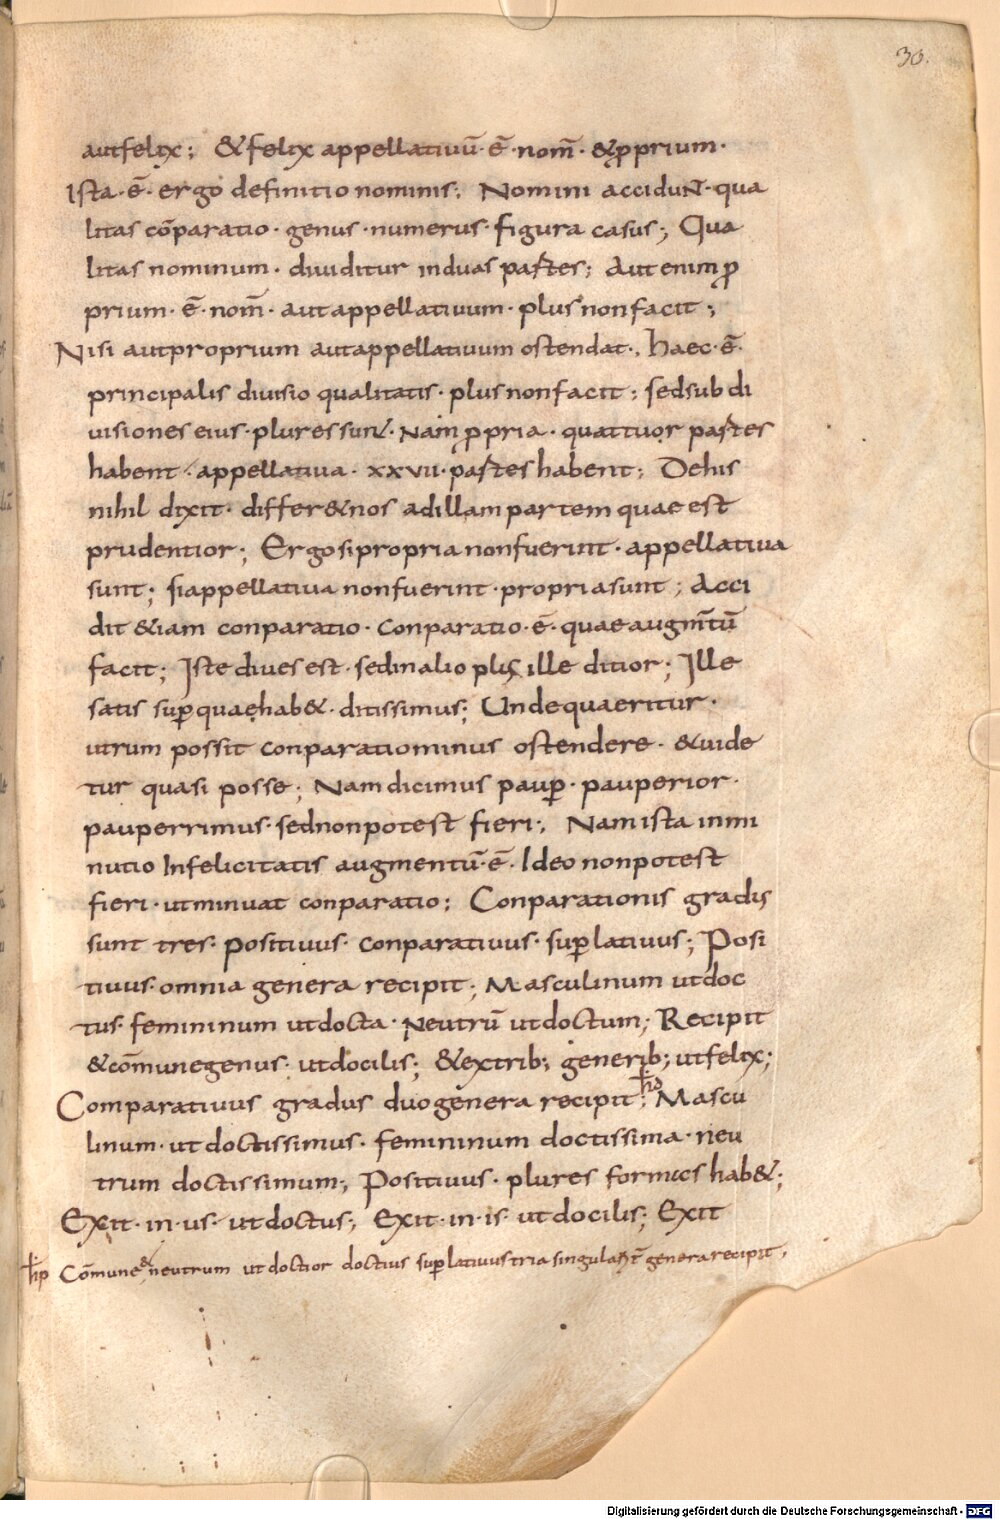 30.
aut felix; & felix appellatiuū · ē · nom̄ · & ꝓprium ·
Ista · ē · ergo definitio nominis; Nomini accidunt · qua
litas cōparatio · genus · numerus · figura casus; Qua
litas nominum · diuiditur induas partes; Aut enim ꝓ
prium · ē · nom̄ · aut appellatiuum · plus non facit;
Nisi aut proprium aut appellatiuum ostendat; haec · ē ·
principalis diuisio qualitatis · plus non facit; sed subdi
uisiones eius · plures sunt · Nam ꝓpria · quattuor partes
habent · appellatiua · xxvii · partes habent; De his
nihil dixit · differ& nos ad illam partem quae est
prudentior; Ergo si propria non fuerint · appellatiua
sunt; si appellatiua non fuerint · propria sunt; Acci
dit &iam conparatio · Conparatio · ē · quae augm̄tū
facit; Iste diues est · sed in alio plus ille ditior; Ille
satis suꝑ quae hab& · ditissimus; Unde quaeritur ·
utrum possit conparatio minus ostendere · & uide
tur quasi posse; Nam dicimus pauꝑ · pauperior ·
pauperrimus · sed non potest fieri; Nam ista immi
nutio Infelicitatis augmentū · ē · Ideo non potest
fieri · ut minuat conparatio; Conparationis gradus
sunt tres · Positiuus · conparatiuus · suꝑlatiuus; Posi
tiuus · omnia genera recipit; Masculinum ut doc
tus · femininum ut docta · Neutrū ut doctum; Recipit
& cōmune genus · ut docilis; & ex trib; generib; ut felix;
Comparatiuus gradus duo genera recipit; hđ Mascu
linum · ut doctissimus · femininum doctissima · neu
trum doctissimum; Positiuus · plures formas hab&;
Exit · in · us · ut doctus; Exit · in · is · ut docilis; Exit
hp Cōmune & neutrum ut doctior doctius suꝑlatiuus tria singulart̄ genera recipit,
Digitalisierung gefördert durch die Deutsche Forschungsgemeinschaft - DFG